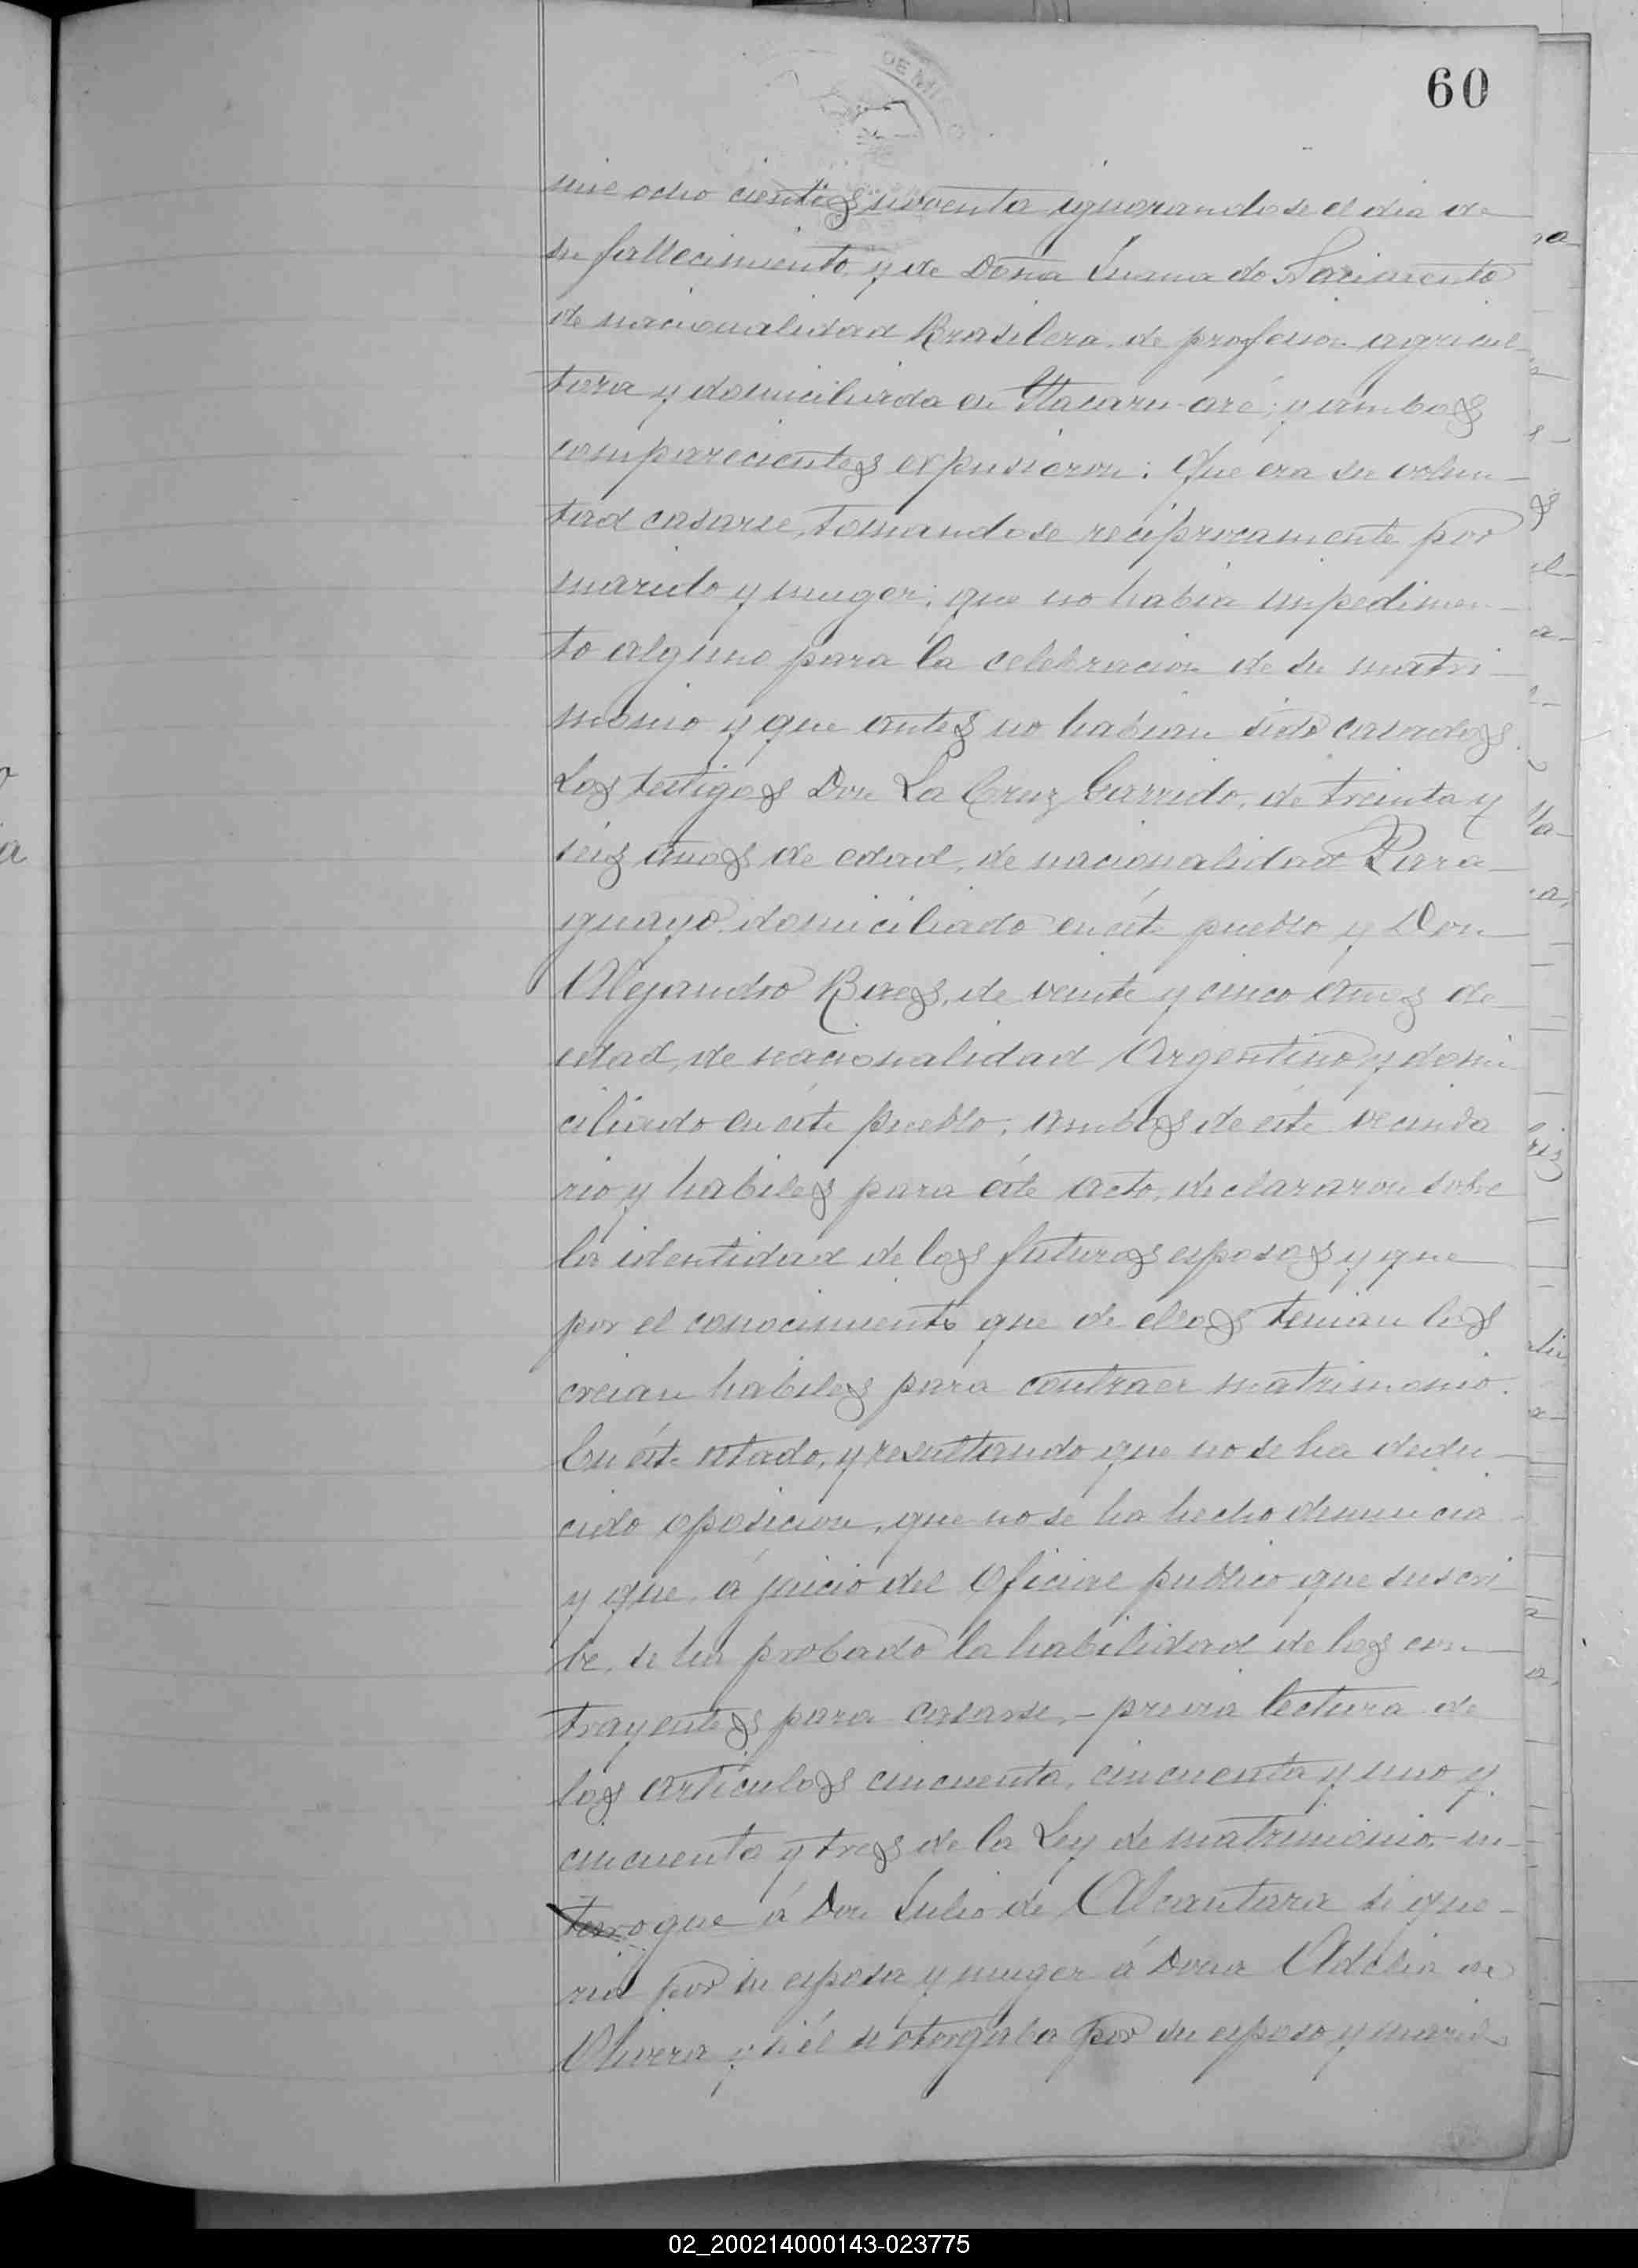 60
DE MI
mil ocho cientos noventa ignorandose el dia de
su fallecimiento y de Doña Juana do Nacimento
de nacionalidad Brasilera de profesion agricul
tora y domiciliada en Itacaru-aré; y ambos
comparecientes expusieron: Que era su volun-
tad casarse, tomandose reciprocamente por
marido y muger; que no habia impedimen-
to alguno para la celebracion de su matri-
monio y que antes no habian sido casados.
Los testigos Don La Cruz Garrido, de treinta y
séis años de edad, de nacionalidad Para-
guayo domiciliado en éste pueblo y Don
Alejandro Baes, de veinte y cinco años de
edad, de nacionalidad Argentino y domi
ciliado en éste pueblo; ambos de éste vecinda
rio y habiles para éste acto, declararon sobre
la identidad de los futuros esposos y que
por el conocimiento que de ellos tenian los
creian habiles para contraer matrimonio.
En éste estado, y resultando que no se ha dedu-
cido oposicion, que no se ha hecho denuncia
y que, á juicio del Oficial publico que suscri
be, se ha probado la habilidad de los con-
trayentes para casarse,- previa lectura de
los articulos cincuenta, cincuenta y uno y
cincuenta y tres de la Ley de matrimonio,- in-
terrogue á Don Julio de Alcantara si que-
ria por su esposa y muger á Doña Adelia de
Olivera y si él se otorgaba por su esposo y marido
02_200214000143-023775